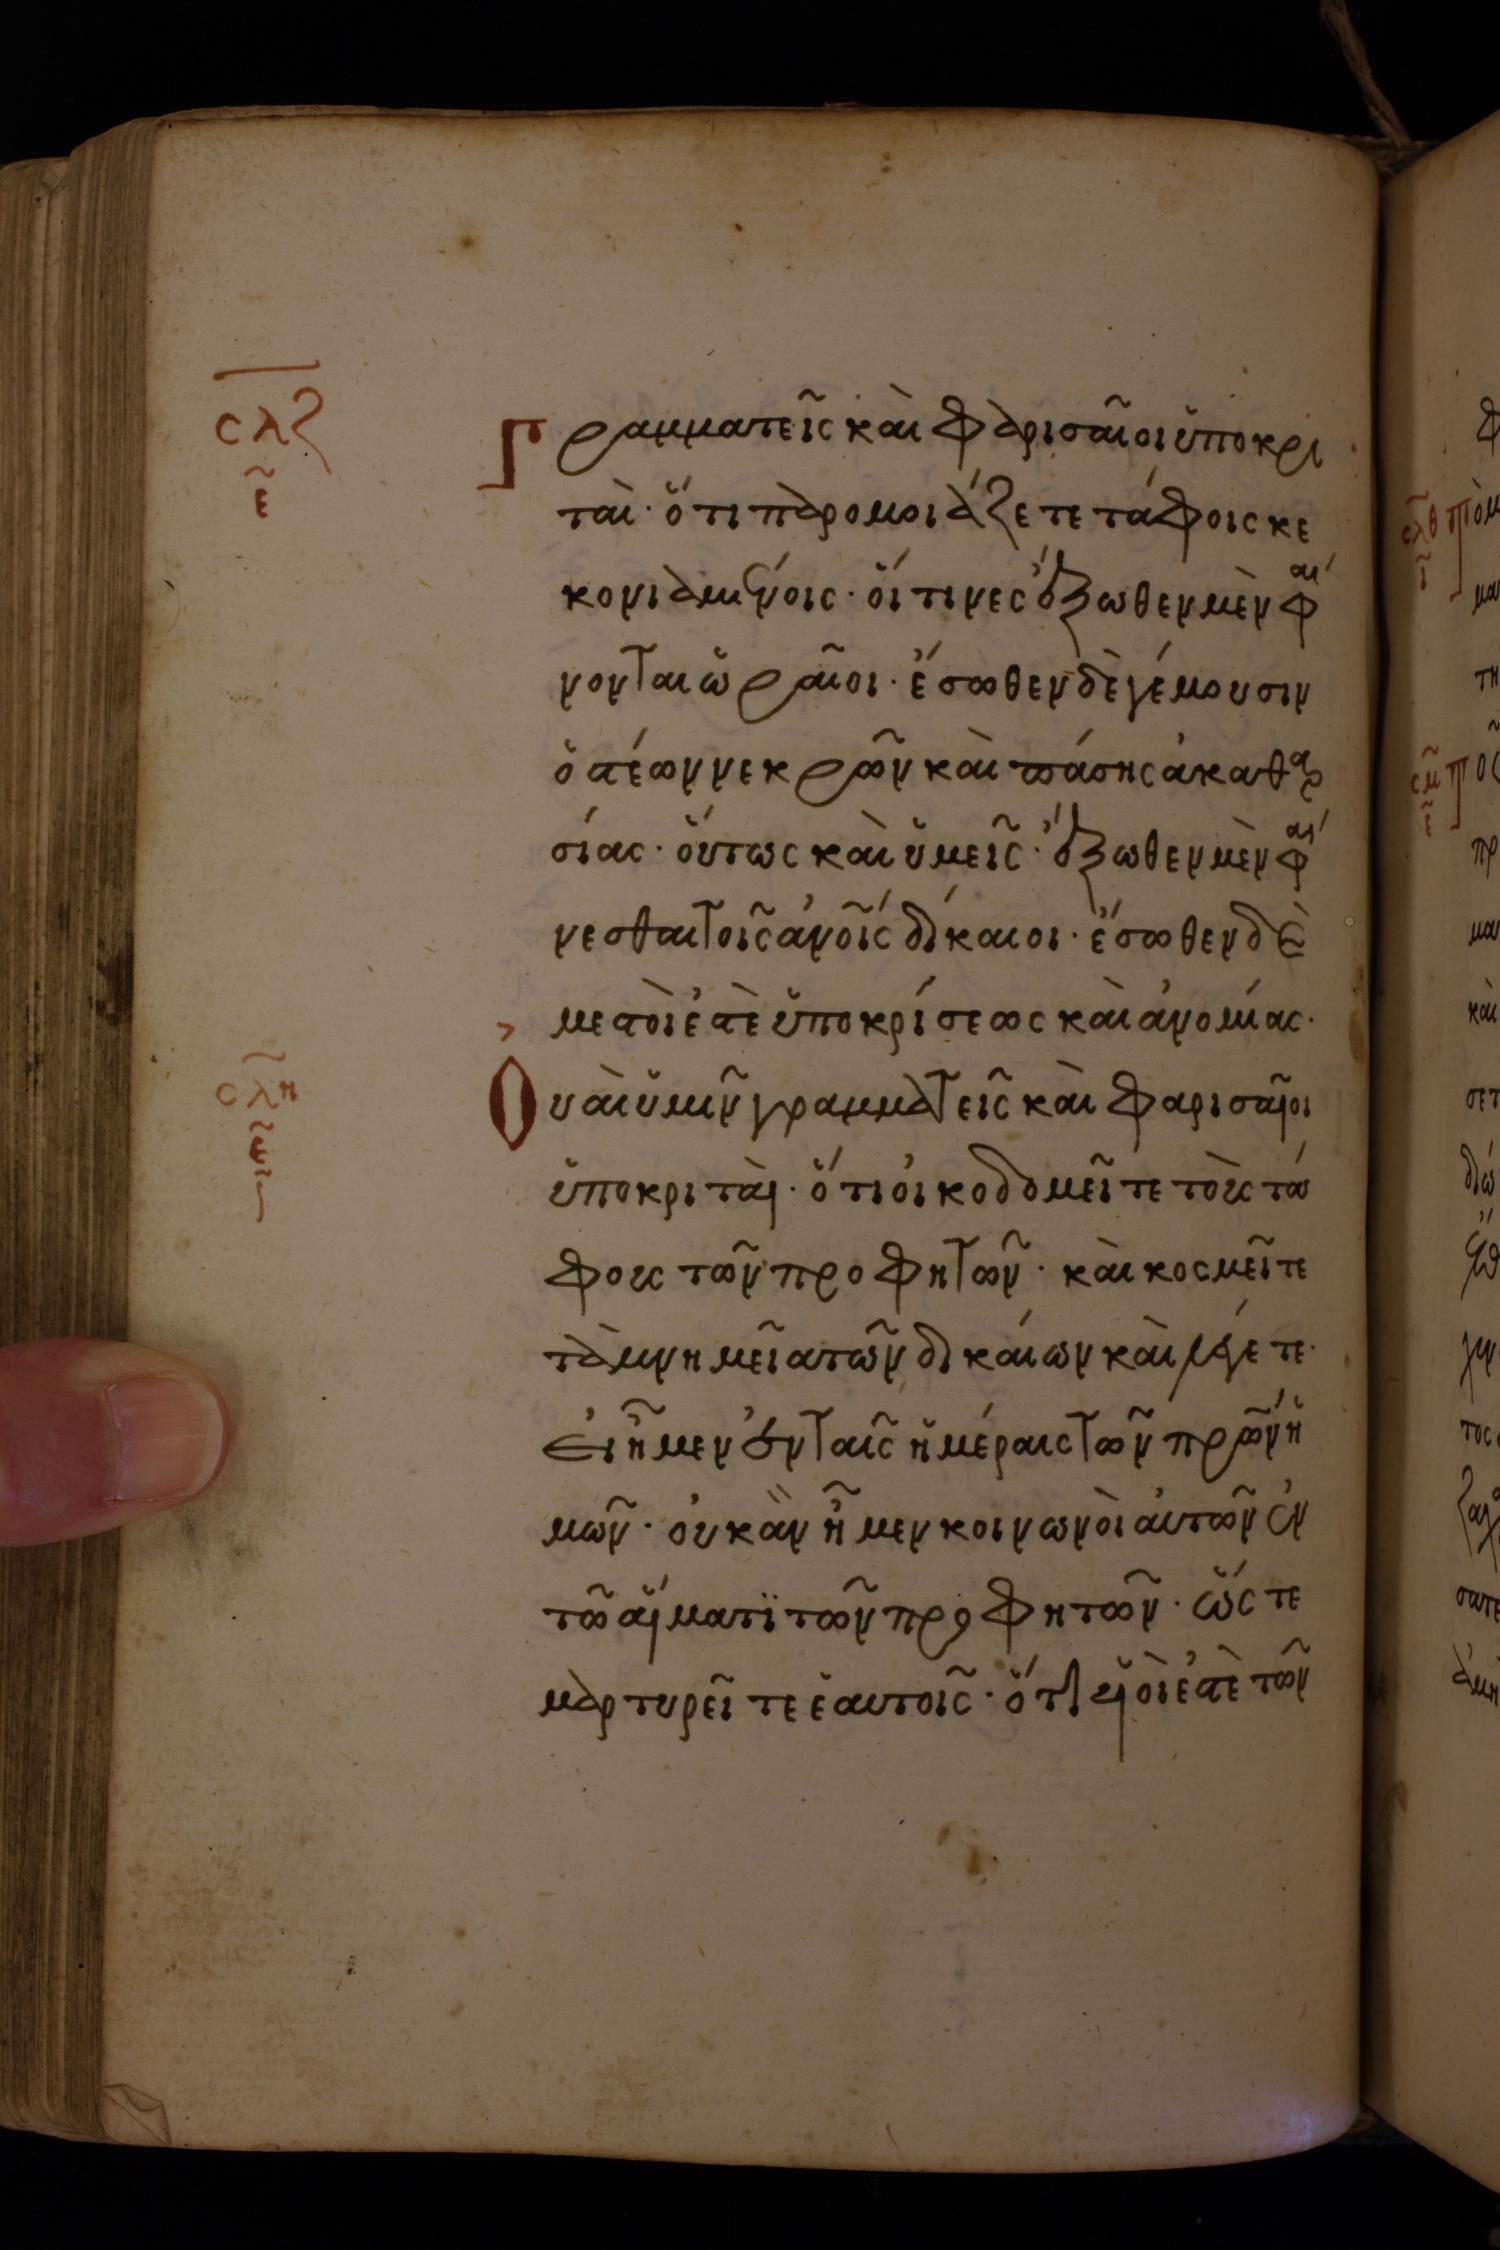 σλζ
ε
Γραμματεῖς καὶ Φαρισαῖοι ὑποκρι
ταὶ· ὅτι παρομοιάζετε τάφοις κε
κονιαμένοις· οἵτινες ἔξωθεν μὲν φαί
νονται ὡραῖοι· ἔσωθεν δὲ γέμουσιν
ὀστέων νεκρῶν καὶ πάσης ἀκαθαρ
σίας· οὕτως καὶ ὑμεῖς· ἔξωθεν μὲν φαί
νεσθαι τοῖς ἀνοῖς δίκαιοι· ἔσωθεν δὲ
μεστοὶ ἐστὲ ὑποκρίσεως καὶ ἀνομίας·
σλη
Οὐαὶ ὑμῖν γραμματεῖς καὶ Φαρισαῖοι
ὑποκριταὶ· ὅτι οἰκοδομεῖτε τοὺς τά
φους τῶν προφητῶν· καὶ κοσμεῖτε
τὰ μνημεῖα τῶν δικαίων καὶ λέγετε·
εἰ ἦμεν ἐν ταῖς ἡμέραις τῶν πρῶν ἡ
μῶν· οὐκ ἂν ἦμεν κοινωνοὶ αὐτῶν ἐν
τῶ αἵματι τῶν προφητῶν· ὥστε
μαρτυρεῖτε ἑαυτοῖς· ὅτι υἱοὶ ἐστὲ τῶν
σλθ
σμ